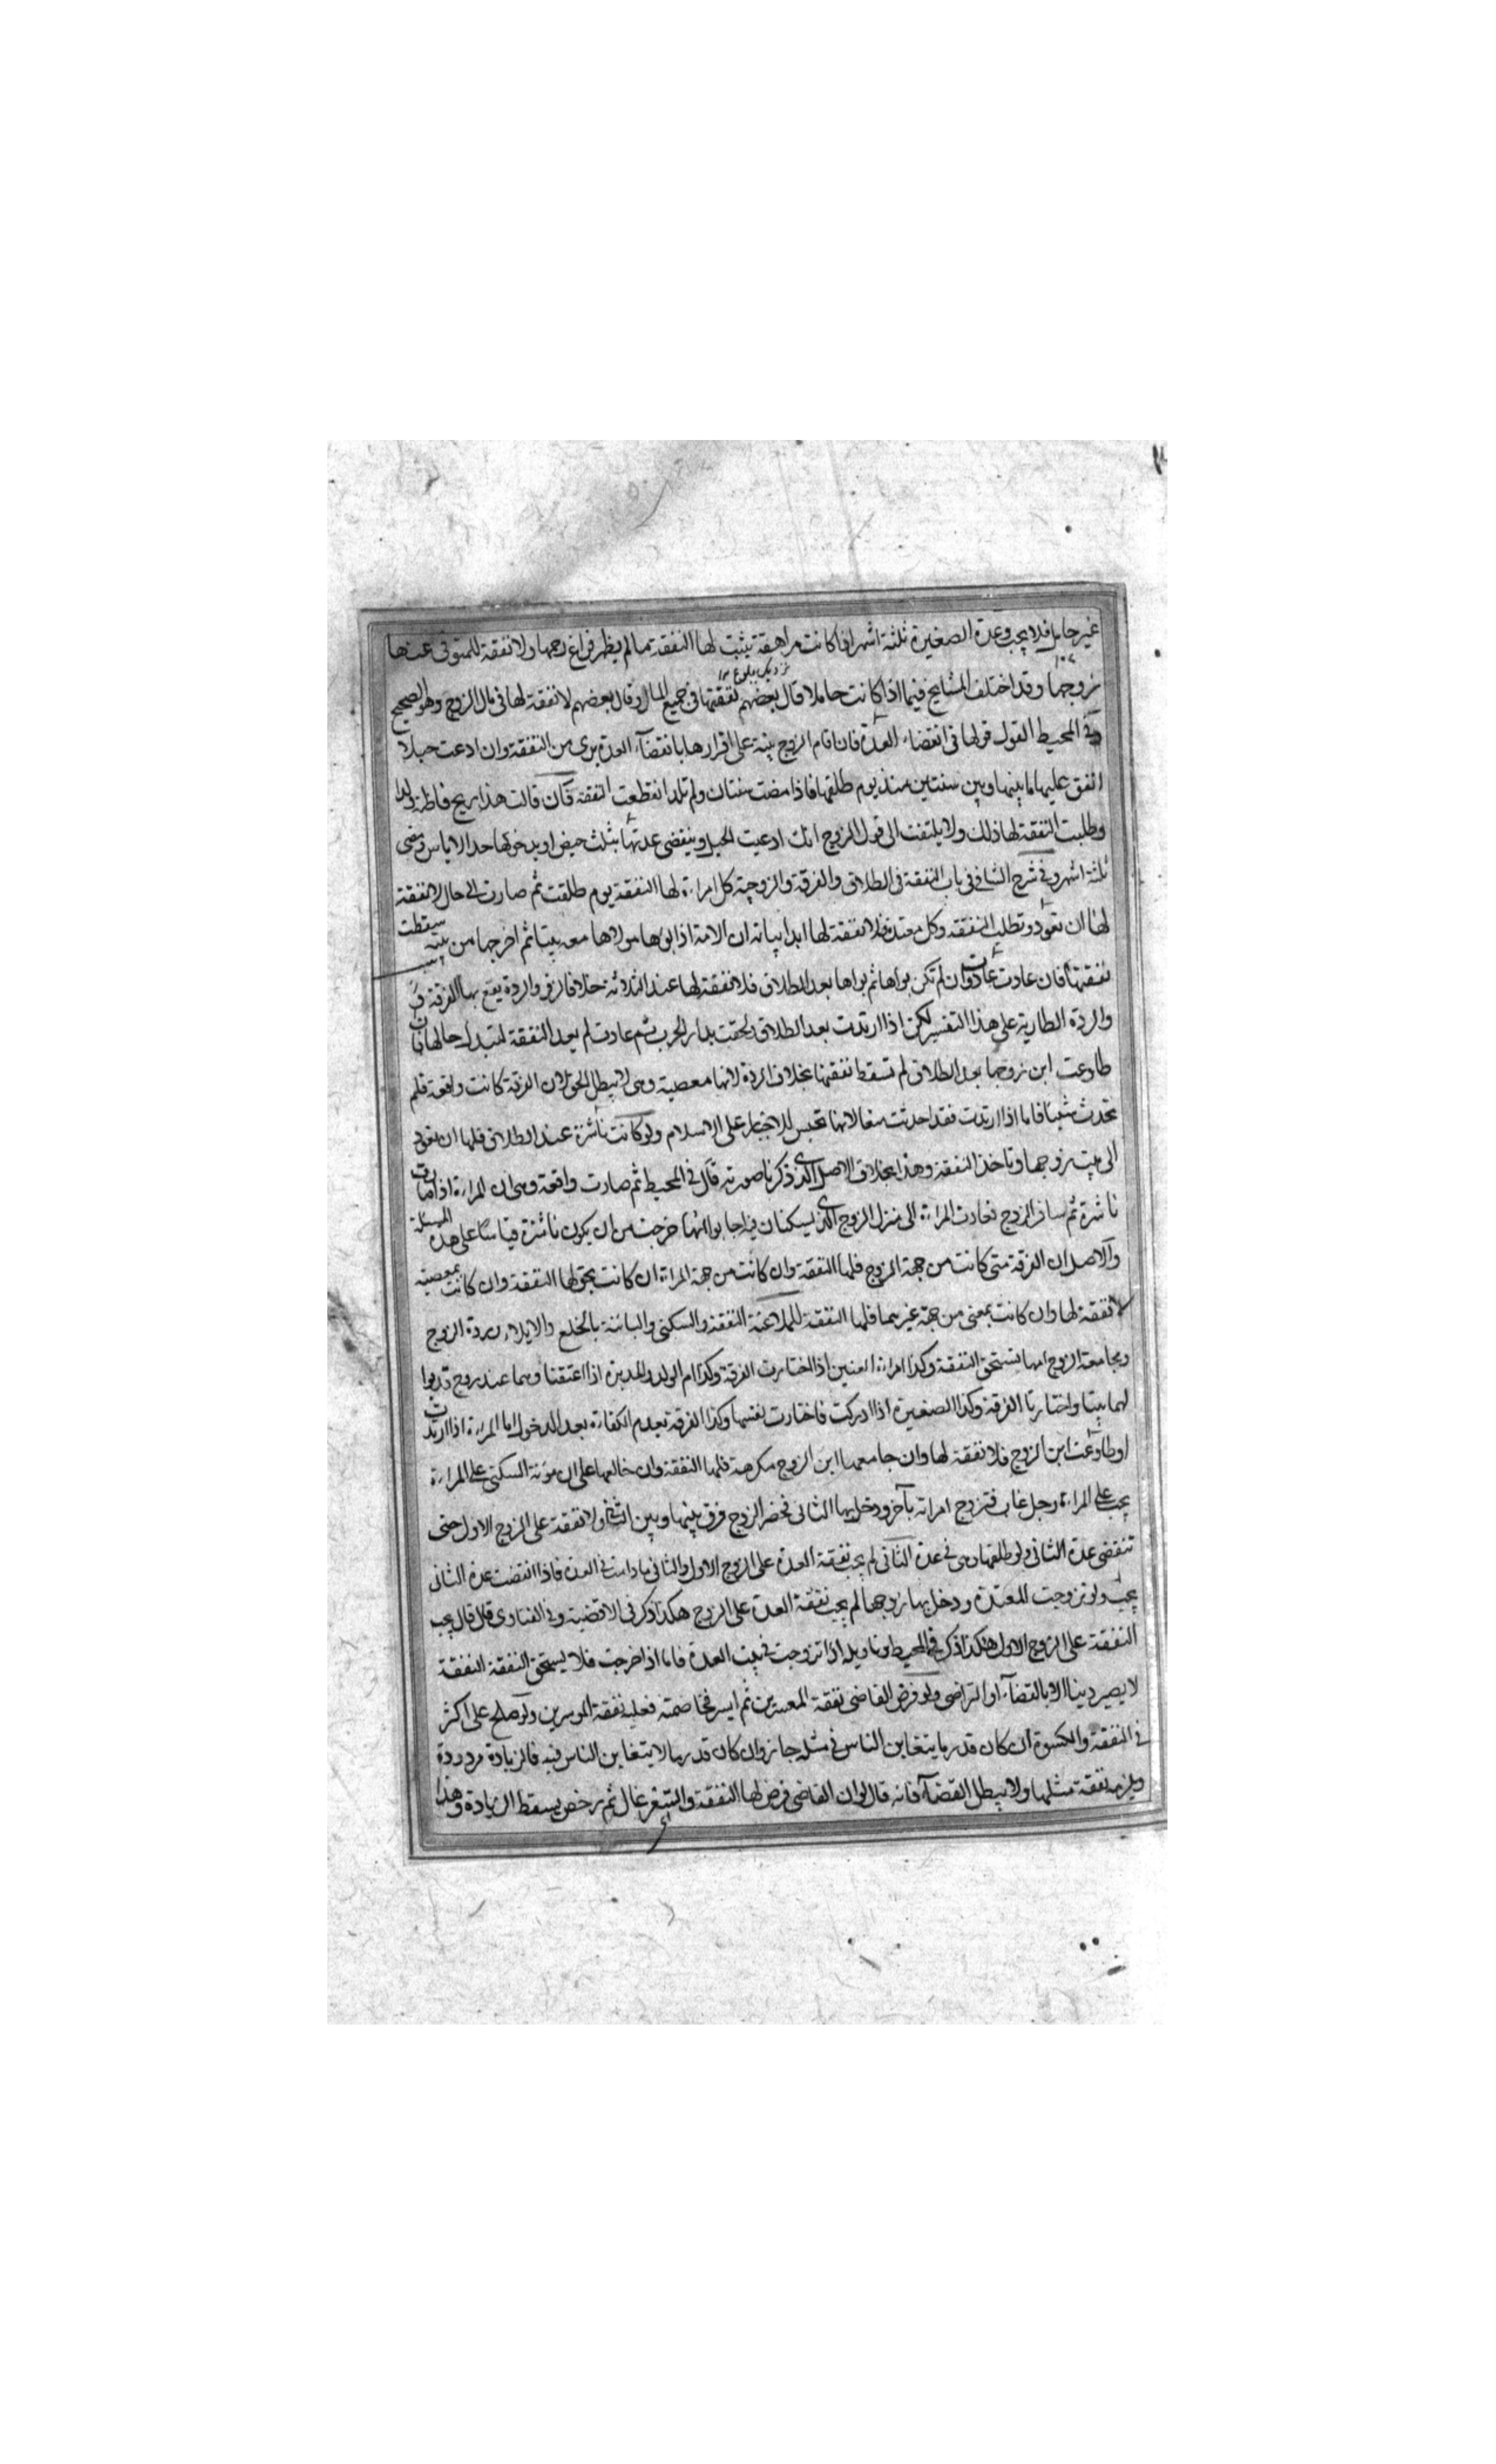 غير حامل فلا يجب وعدة الصغيرة ثلثة اشهر اذا كانت مراهقة يثبت لها النفقة مما لم يظهر فراغ رحمها ولا نفقة للمتوفى عنها
نزديك ببلوغ ١٢
زوجها وقد اختلف المشايخ فيما اذا كانت حاملا قال بعضهم نفقتها في جميع المال وقال بعضهم لا نفقة لها في مال الزوج وهو الصحيح
وفي المحيط القول قولها في انقضاء العدة فان اقام الزوج بينة على اقرارها بانقضاء العدة برى من النفقة وان ادعت حبلا
انفق عليها ما بينها وبين سنتين منذ يوم طلقها فاذا مضت سنتان ولم تلد انقطعت النفقة فان قالت هذا ريح
وطلبت النفقة لها ذلك ولا يلتفت الى قول الزوج انك ادعيت الحبل وينقضى عدتها بثلث حيض او بدخولها حد الاياس ومضى
ثلثة اشهر وفي شرح الشافي في باب النفقة في الطلاق والفرقة والزوجية كل امراءة لها النفقة يوم طلقت ثم صارت الى حال لا نفقة
لها ان تعود وتطلب النفقة وكل معتدة فلا نفقة لها ابدا بيانه ان الامة اذا بواها مولاها معه بيتا ثم اخرجها من بيته سقطت
نفقتها فان عادت عادت وان لم تكن بواها ثم بواها بعد الطلاق فلا نفقة لها عند الثلاثة خلافا لزفر والردة يقع بها الفرقة
والردة الطارية على هذا التفسير لكن اذا ارتدت بعد الطلاق ولحقت بدار الحرب ثم عادت لم يعد النفقة لتبدل حالها فان
طاوعت ابن زوجها بعد الطلاق لم تسقط نفقتها بخلاف الردة لانها معصية وهي لا يبطل الحق لان الفرقة كانت واقعة فلم
تحدث شيئا فاما اذا ارتدت فقد احدثت منعا لانها تحبس للاجبار على الاسلام ولو كانت ناشزة عند الطلاق فلها ان تعود
الى بيت زوجها وتاخذ النفقة وهذا بخلاف الاصل الذي ذكرنا صورته قال في المحيط ثم صارت واقعة وهي ان المراءة اذا
ناشزة ثم سافر الزوج فعادت المراءة الى منزل الزوج الذي يسكنان فيه اجابوا انها خرجت من ان يكون ناشزة قياسا على هذه المسئلة
والاصل ان الفرقة متى كانت من جهة الزوج فلها النفقة وان كانت من جهة المراءة ان كانت بحق لها النفقة وان كانت بمعصية
لا نفقة لها وان كانت بمعنى من جهة غيرهما فلها النفقة للملاعنة النفقة والسكنى والباينة بالخلع والايلاء وردة الزوج
وبجامعة الزوج امها تستحق النفقة وكذا امراءة العنين اذا اختارت الفرقة وكذا ام الولد والمدبرة اذا اعتقتا وهما عند زوج قد بوا
لهما بيتا واختارتا الفرقة وكذا الصغيرة اذا ادركت فاختارت نفسها وكذا الفرقة بعدم الكفاءة بعد الدخول اما المراءة اذا ارتدت
او طاوعت ابن الزوج فلا نفقة لها وان جامعها ابن الزوج مكرهة فلها النفقة وان خالعها على ان مؤنة السكنى على المراءة
يجب على المراءة رجل غاب فتزوج امراته بآخر ودخل بها الثاني فحضر الزوج فرق بينها وبين الثاني ولا نفقة على الزوج الاول حتى
تنقضى عدة الثاني ولو طلقها وهي في عدة الثاني لم يجب نفقة العدة على الزوج الاول والثاني ما دامت في العدة فاذا انقضت عدة الثاني
يجب ولو تزوجت المعتدة ودخل بها زوجها لم يجب نفقة العدة على الزوج هكذا ذكر في الاقضية وفي الفتاوى قال قال يجب
النفقة على الزوج الاول هكذا ذكر في المحيط وتاويله اذا تزوجت في بيت العدة فاما اذا خرجت فلا يستحق النفقة النفقة
لا يصير دينا الا بالقضاء او التراضى ولو فرض القاضى نفقة المعسرين ثم ايسر فخاصمته فعليه نفقة الموسرين ولو صلح على اكثر
في النفقة والكسوة ان كان قدر ما يتغابن الناس في مثله جاز وان كان قدر ما لا يتغابن الناس فيه فالزيادة مردودة
ويلزمه نفقة مثلها ولا يبطل القضاء فانه قال لو ان القاضى فرض لها النفقة والسعر غال ثم رخص يسقط الزيادة وهذا